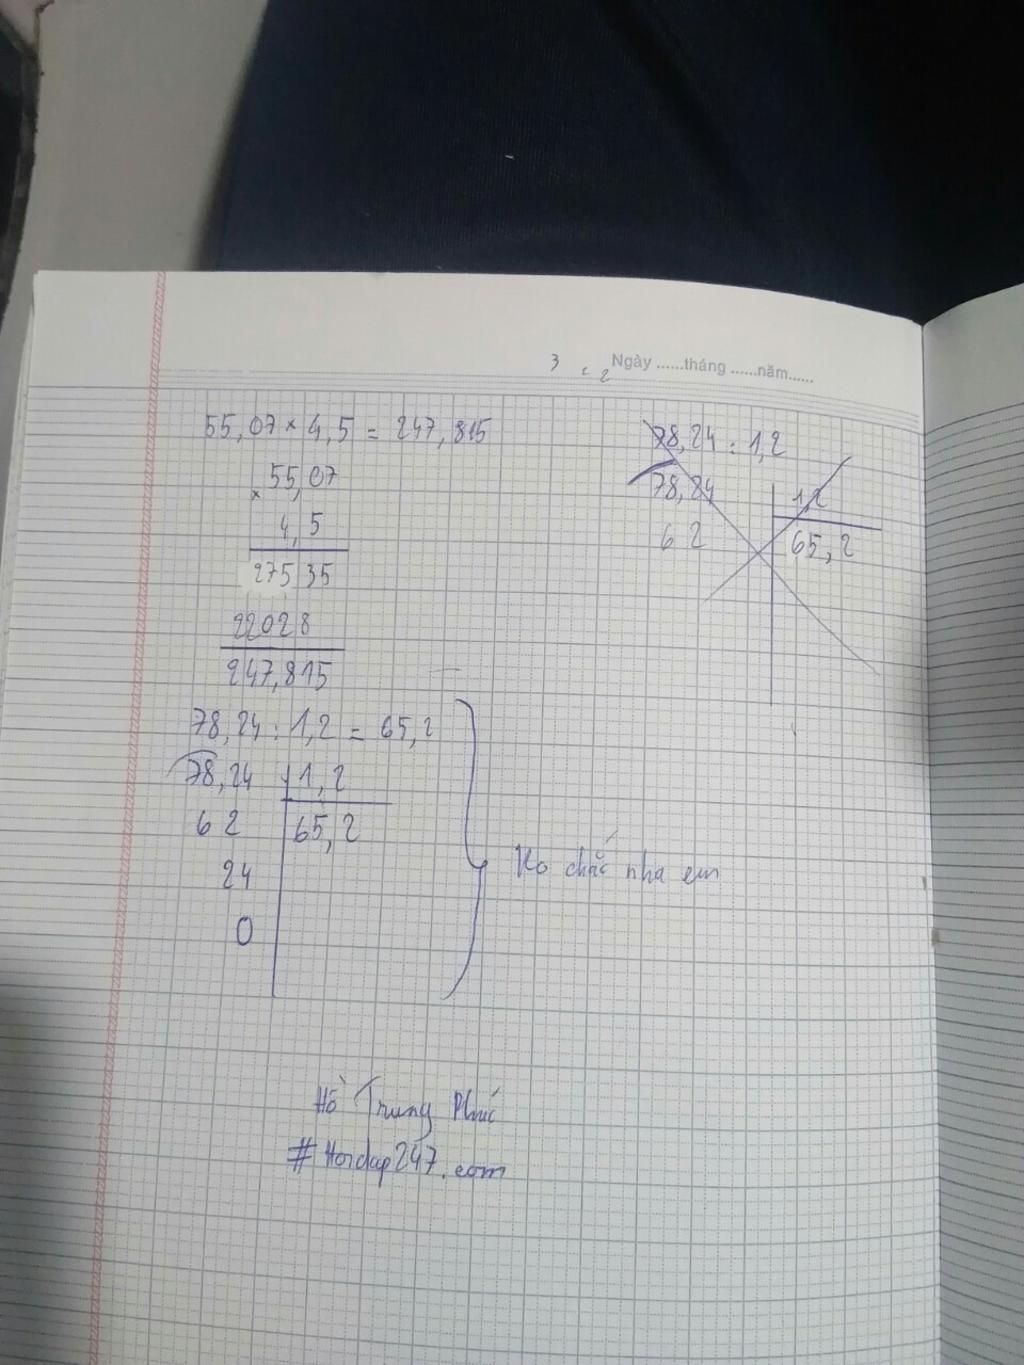 3 c 2 Ngày ......tháng ......năm......
55,07 × 4,5 = 247,815
55,07
×
4,5
27535
22028
247,815
78,24 : 1,2
78,24 1,2
62 65,2
78,24 : 1,2 = 65,2
78,24 1,2
62 65,2
24
0
Ko chắc nha em
Hồ Trung Phúc
#Hoidap247.com